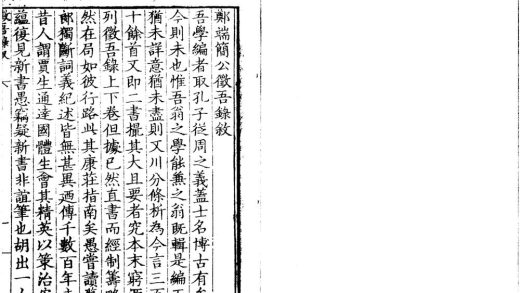 鄭端簡公徵吾錄敘
吾學編者取孔子從周之義蓋士名博古有
今則未也惟吾翁之學能兼之翁既輯是編
猶未詳意猶未盡則又川分條析為今言三百
十餘首又即二書撮其大且要者究本末窮
列徵吾錄上下卷但據已然直書而經制籌
然在局如彼行路此其康莊指南矣愚嘗讀
郎獨斷詞義紀述皆無甚異迺傳千數百年
昔人謂賈生通達國體生會其精英以策治
蘊後見新書愚竊疑新書非誼筆也胡出一人